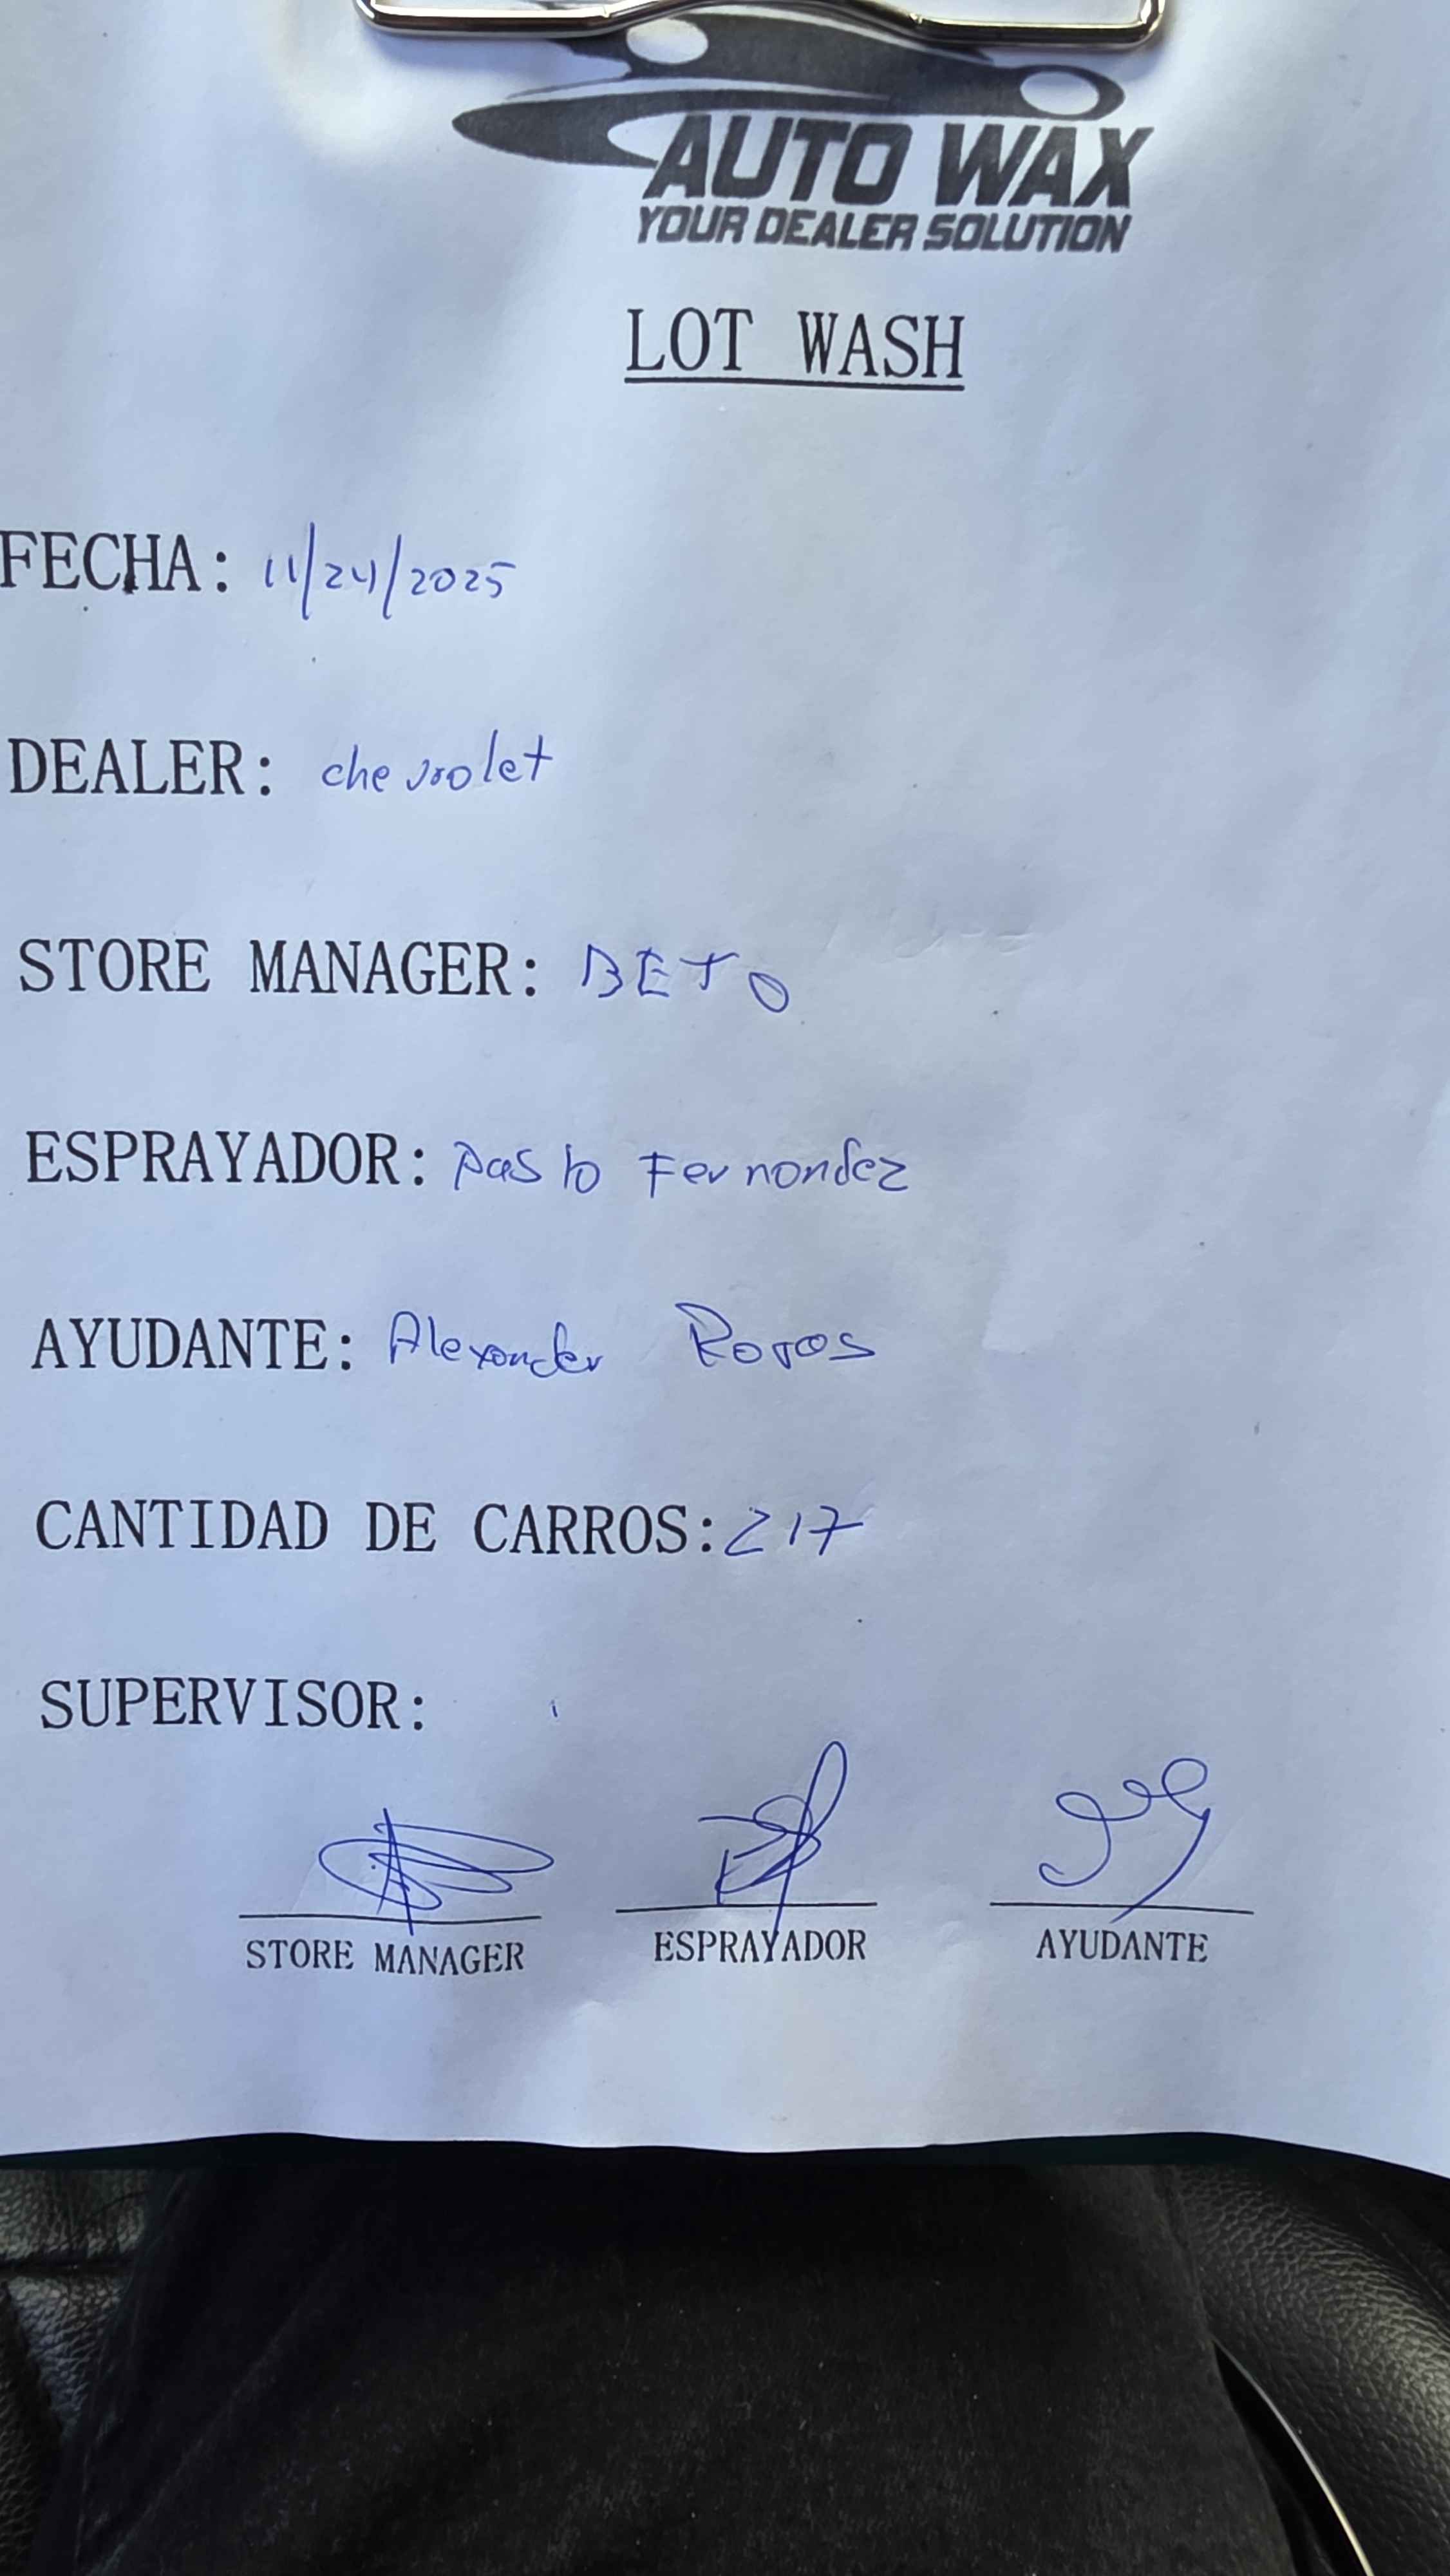 AUTO WAX
YOUR DEALER SOLUTION
LOT WASH
FECHA: 11/24/2025
DEALER: chevrolet
STORE MANAGER: BETO
ESPRAYADOR: Fernandez
AYUDANTE: Alexander Rojas
CANTIDAD DE CARROS: 217
SUPERVISOR:
STORE MANAGER ESPRAYADOR AYUDANTE